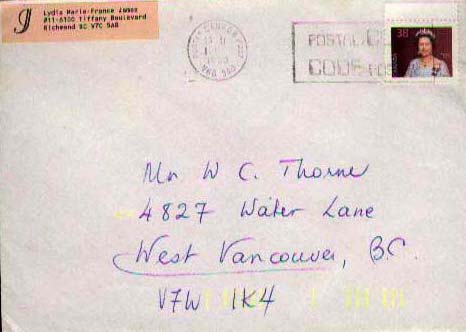 Lydia Marie-France James
#11-6100 Tiffany Boulevard
Richmond BC V7C 5A8
POSTAL CO
CODE POS
38
Mr W C. Thorne
4827 Water Lane
West Vancouver, BC.
V7W 1K4